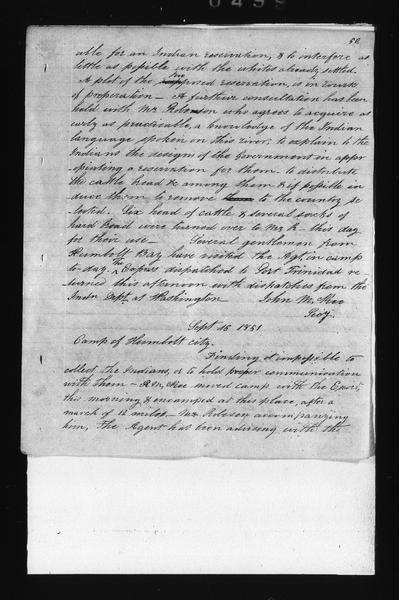 50
able for an Indian reservation, & to interfere as
little as possible with the whites already settled.
A plot of the reservation, is in course
of preparation — A further consultation has been
held with Mr Robinson who agrees to acquire as
early as practicable, a knowledge of the Indian
language spoken on this river, to explain to the
Indians the designs of the Government in appr
opriating a reservation for them to distribute
the cattle bead &c among them & if possible in
duce them to remove to the country se
lected. Six head of cattle & several sacks of
hard bread were turned over to Mr R. this day
for their use — Several gentlemen from
Humboldt Bay have visited the Agt. in camp
to-day. The Express dispatched to Port Trinidad re-
turned this afternoon with dispatches from the
Indn Dept. at Washington John McKee
Secy.
Sept 16 1851
Camp of Humbolt city.
Finding it impossible to
collect the Indians, or to hold proper communication
with them — Col. McKee moved camp with the Escort,
this morning & encamped at this place, after a
march of 12 miles — Mr Robeson accompanying
him, The Agent has been advising with the